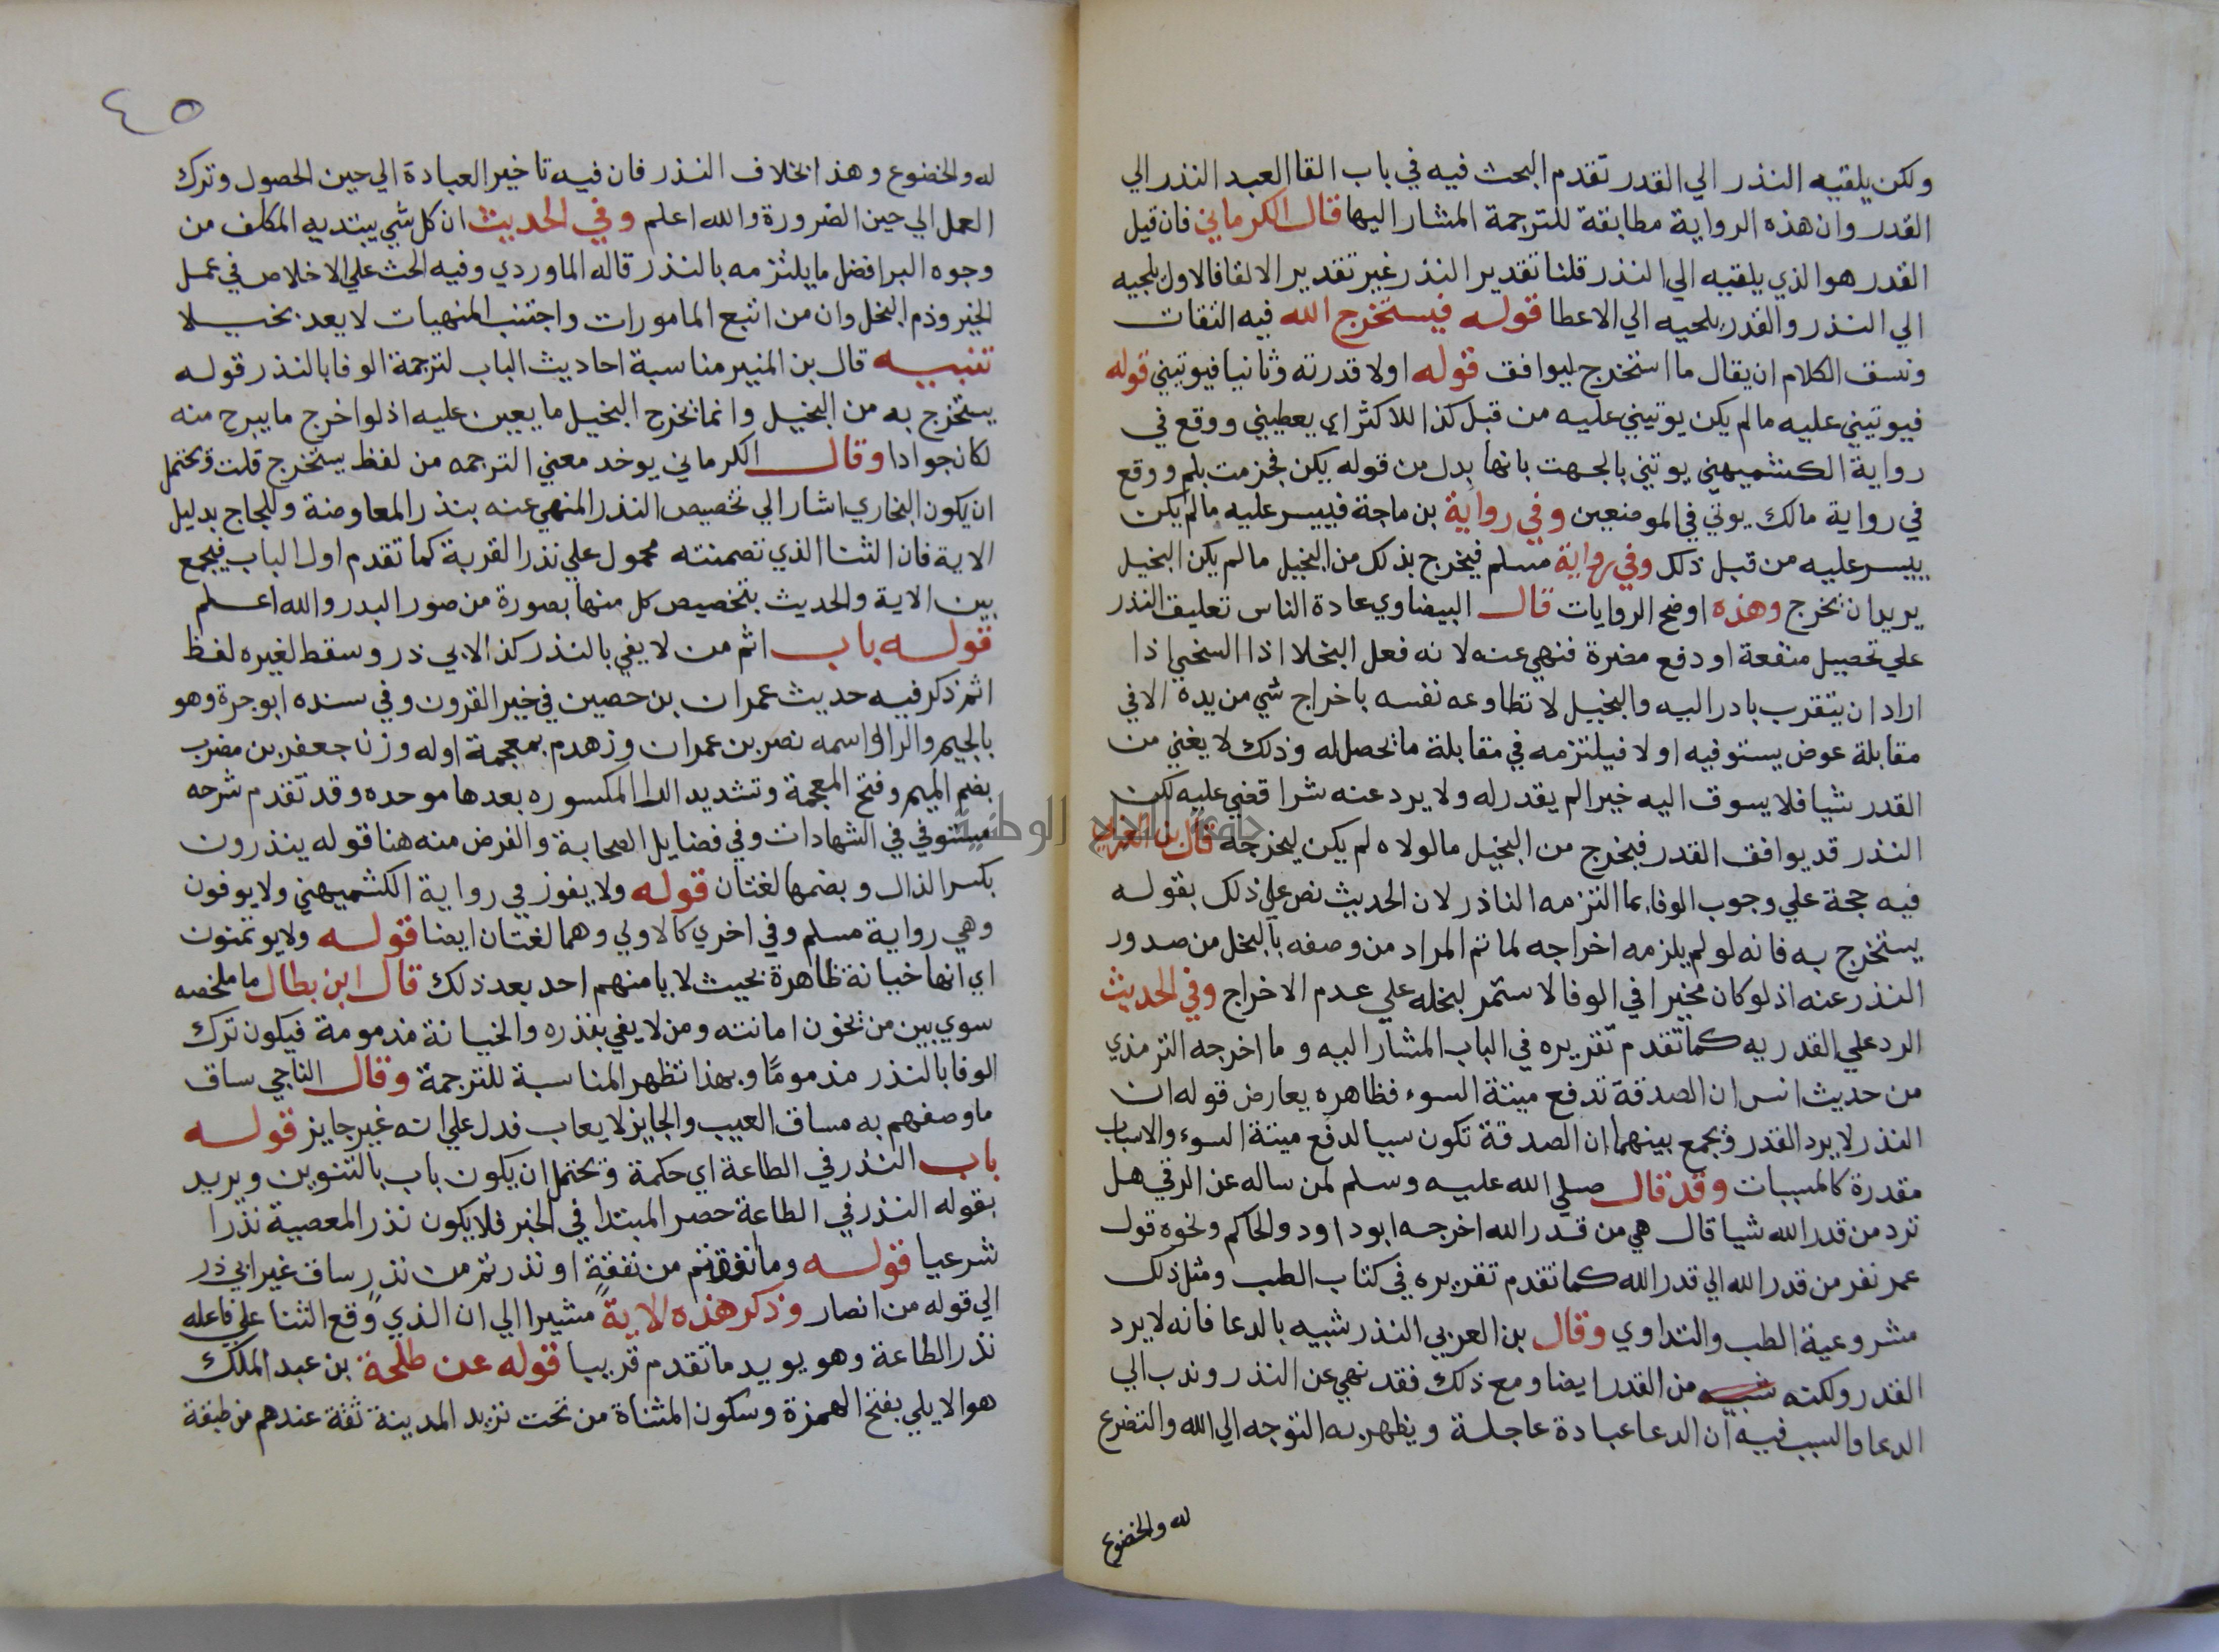 ولكن يلقيه النذر الي القدر تقدم البحث فيه في باب القا العبد النذر الي
القدر وان هذه الرواية مطابقة للترجمة المشار اليها قال الكرماني فان قيل
القدر هو الذي يلقيه الي النذر قلنا تقدير النذر غير تقدير الالقا فالاول يلجيه
الي النذر والقدر يلجيه الي الاعطا قوله فيستخرج الله فيه التفات
ونسق الكلام ان يقال ما استخرج ليوافق قوله اولا قدرته وثانيا فيوتيني قوله
فيوتيني عليه ما لم يكن يوتيني عليه من قبل كذا للاكثر اي يعطيني ووقع في
رواية الكشميهني يوتني بالجهت بانها بدل من قوله يكن فجزمت بلم ووقع
في رواية مالك يوتي في الموضعين وفي رواية بن ماجة فييسر عليه مالم يكن
ييسر عليه من قبل ذلك وفي رواية مسلم فيخرج بذلك من البخيل مالم يكن البخيل
يريد ان يخرج وهذه اوضح الروايات قال البيضاوي عادة الناس تعليق النذر
علي تحصيل منفعة او دفع مضرة فنهي عنه لانه فعل البخلا اذا السخي اذا
اراد ان يتقرب بادر اليه والبخيل لا تطاوعه نفسه باخراج شي من يده الا في
مقابلة عوض يستوفيه اولا فيلتزمه في مقابلة ما يحصل له وذلك لا يغني من
القدر شيا فلا يسوق اليه خيرا لم يقدر له ولا يرد عنه شرا قضي عليه لكن
النذر قد يوافق القدر فيخرج من البخيل مالولاه لم يكن ليخرجه قال بن العربي
فيه حجة علي وجوب الوفا بما التزمه الناذر لان الحديث نص علي ذلك بقوله
يستخرج به فانه لو لم يلزمه اخراجه لما تم المراد من وصفه بالبخل من صدور
النذر عنه اذ لو كان مخيرا في الوفا لاستمر لبخله علي عدم الاخراج وفي الحديث
الرد علي القدريه كما تقدم تقريره في الباب المشار اليه وما اخرجه الترمذي
من حديث انس ان الصدقة تدفع ميتة السوء فظاهره يعارض قوله ان
النذر لا يرد القدر ويجمع بينهما ان الصدقة تكون سببا لدفع ميتة السوء والاسباب
مقدرة كالمسببات وقد قال صلي الله عليه وسلم لمن ساله عن الرقي هل
ترد من قدر الله شيا قال هي من قدر الله اخرجه ابو داود والحاكم ونحوه قول
عمر نفر من قدر الله الي قدر الله كما تقدم تقريره في كتاب الطب ومثل ذلك
مشروعية الطب والتداوي وقال بن العربي النذر شبيه بالدعا فانه لا يرد
القدر ولكنه من القدر ايضا ومع ذلك فقد نهي عن النذر وندب الي
الدعا والسبب فيه ان الدعا عبادة عاجلة ويظهر به التوجه الي الله والتضرع
له والخضوع
٤٥
له والخضوع وهذا بخلاف النذر فان فيه تاخير العبادة الي حين الحصول وترك
العمل الي حين الضرورة والله اعلم وفي الحديث ان كل شي يبتديه المكلف من
وجوه البر افضل ما يلتزمه بالنذر قاله الماوردي وفيه الحث علي الاخلاص في عمل
الخير وذم البخل وان من اتبع المامورات واجتنب المنهيات لا يعد بخيلا
تنبيه قال بن المنير مناسبة احاديث الباب لترجمة الوفا بالنذر قوله
يستخرج به من البخيل وانما يخرج البخيل ما يعين عليه اذ لو اخرج ما يبرح منه
لكان جوادا وقال الكرماني يوخد معني الترجمه من لفظ يستخرج قلت ويحتمل
ان يكون البخاري اشار الي تخصيص النذر المنهي عنه بنذر المعاوضة واللجاج بدليل
الاية فان الثنا الذي تضمنته محمول علي نذر القربة كما تقدم اول الباب فيجمع
بين الاية والحديث بتخصيص كل منها بصورة من صور البدر والله اعلم
قوله باب اثم من لا يفي بالنذر كذا لابي ذر وسقط لغيره لفظ
اثم ذكر فيه حديث عمران بن حصين في خير القرون وفي سنده ابو جمرة وهو
بالجيم والرا واسمه نصر بن عمران وزهدم بمعجمة اوله وزنا جعفر بن مضرب
بضم الميم وفتح المعجمة وتشديد الرا المكسوره بعدها موحده وقد تقدم شرحه
مستوفي في الشهادات وفي فضايل الصحابة والغرض منه هنا قوله ينذرون
بكسر الذال وبضمها لغتان قوله ولا يفوز في رواية الكشميهني ولا يوفون
وهي رواية مسلم وفي اخري كالاولي وهما لغتان ايضا قوله ولا يوتمنون
اي انها خيانة ظاهرة بحيث لا يامنهم احد بعد ذلك قال ابن بطال ما ملخصه
سوي بين من يخون امانته ومن لا يفي بنذره والخيانة مذمومة فيكون ترك
الوفا بالنذر مذموما وبهذا تظهر المناسبة للترجمة وقال الناجي ساق
ما وصفهم به مساق العيب والجايز لا يعاب فدل علي انه غير جايز قوله
باب النذر في الطاعة اي حكمة ويحتمل ان يكون باب بالتنوين ويريد
بقوله النذر في الطاعة حصر المبتدا في الخبر فلا يكون نذر المعصية نذرا
شرعيا قوله وما انفقتم من نفقة او نذرتم من نذر ساق غير ابي ذر
الي قوله من انصار وذكر هذه الاية مشيرا الي ان الذي وقع الثنا علي فاعله
نذر الطاعة وهو يويد ما تقدم قريبا قوله عن طلحة بن عبد الملك
هو الايلي بفتح الهمزة وسكون المثناة من تحت نزيد المدينة ثقة عندهم من طبقة
جامعة النجاح الوطنية